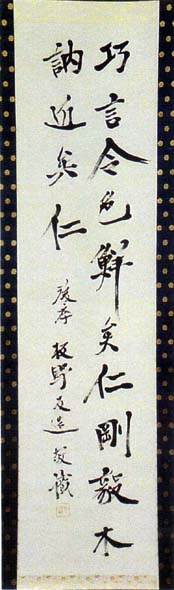 巧言令色鮮矣仁剛毅木
訥近矣仁
板野友造